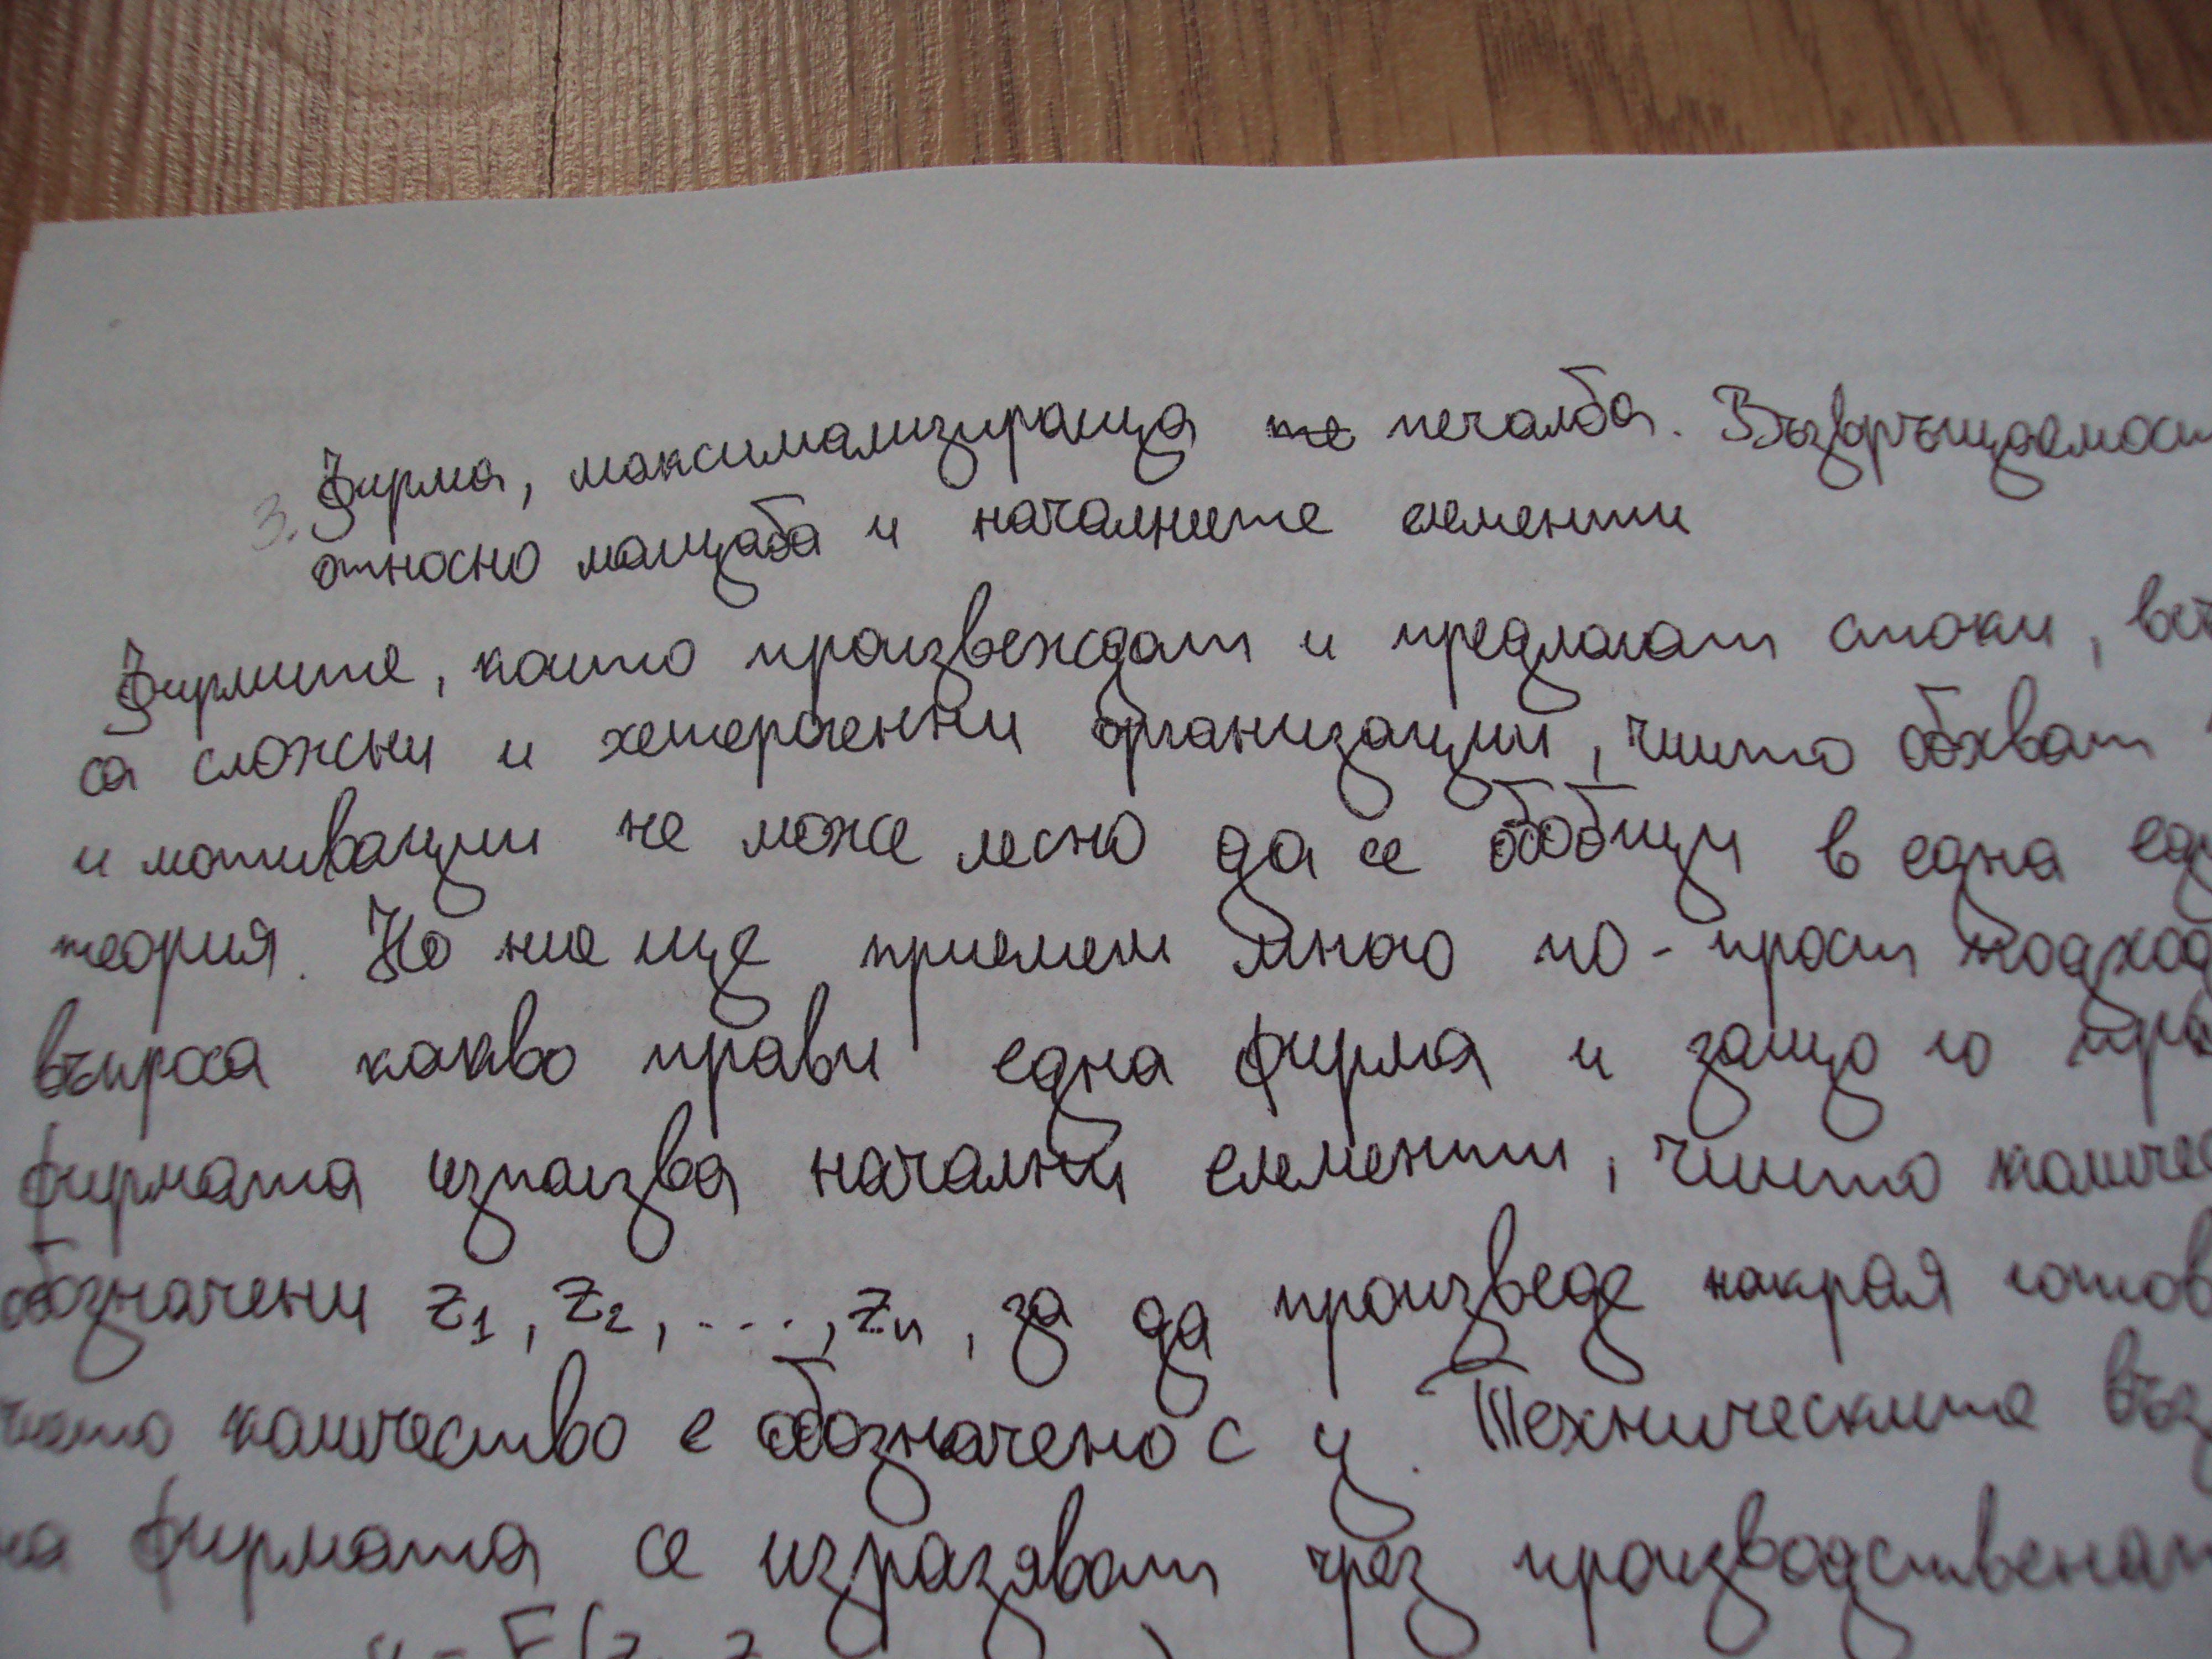 3. Фирма, максимализираща печалба. Възвръщаемост
относно мащаба и началните елементи
Фирмите, които произвеждат и предлагат стоки,
са сложни и хетерогенни организации, чиито обхват
и мотивации не може лесно да се обобщи в една
теория. Но ние ще приемем много по-прост подход
въпроса какво прави една фирма и защо го
фирмата използва начални елементи, чиито
обозначени z1, z2, ..., zn, за да произведе накрая
чието количество е обозначено с y. Техническите
на фирмата се изразяват чрез
y = F(z